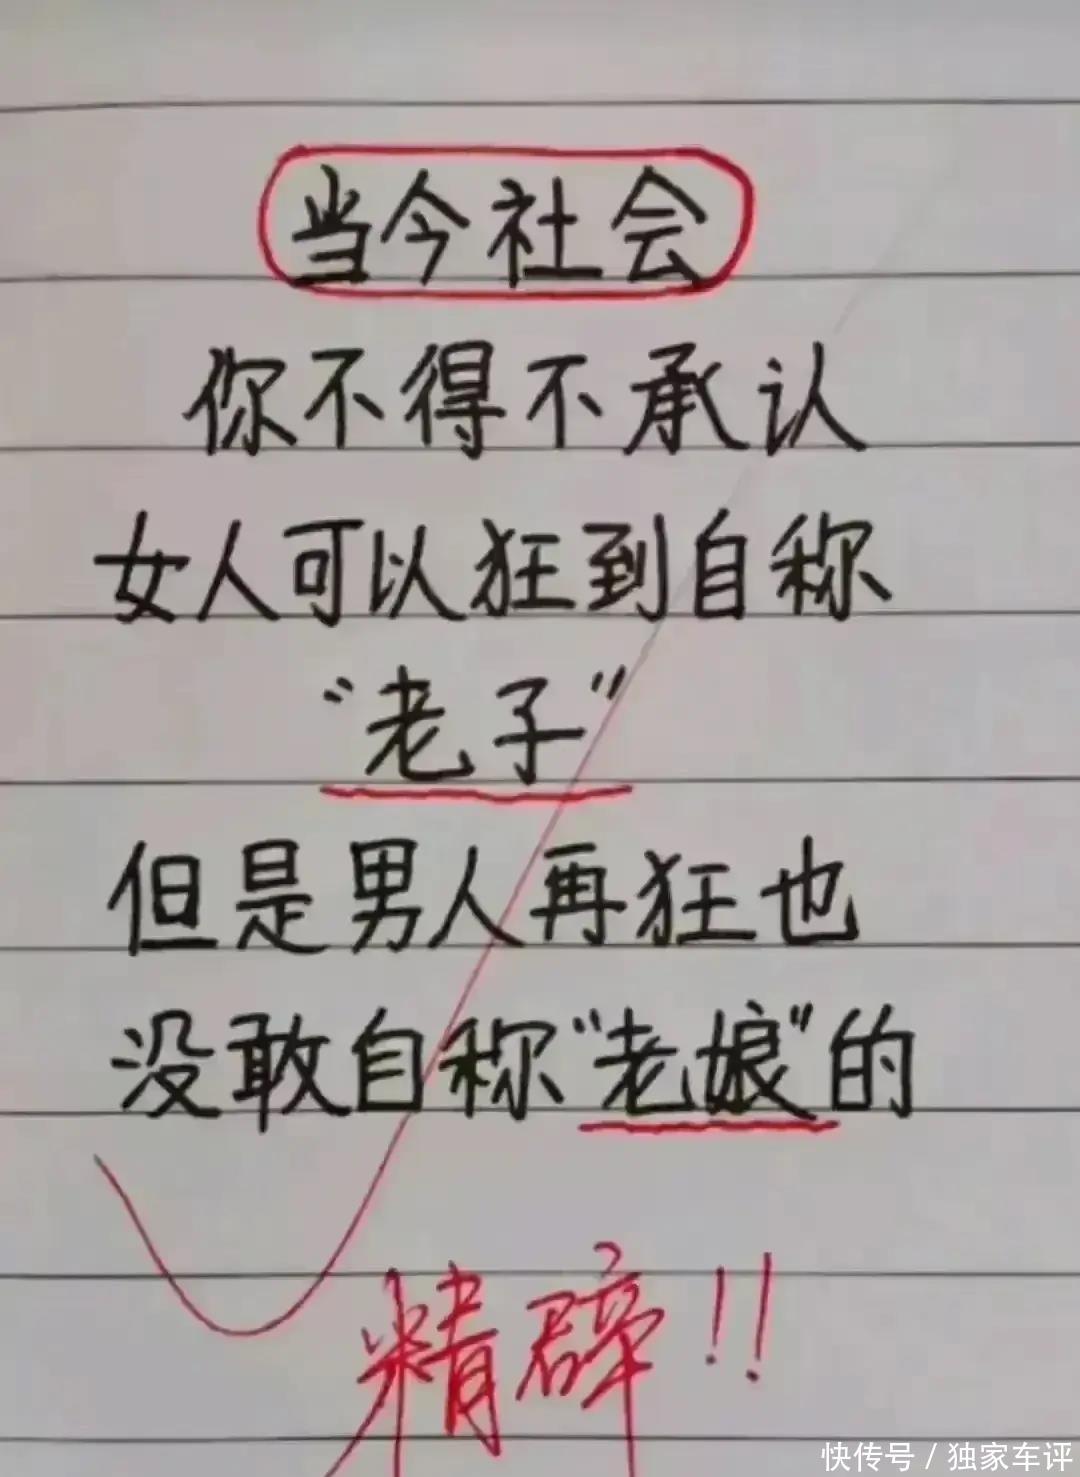 当今社会
你不得不承认
女人可以狂到自称
“老子”
但是男人再狂也
没敢自称“老娘”的
精辟!!
快传号 / 独家车评